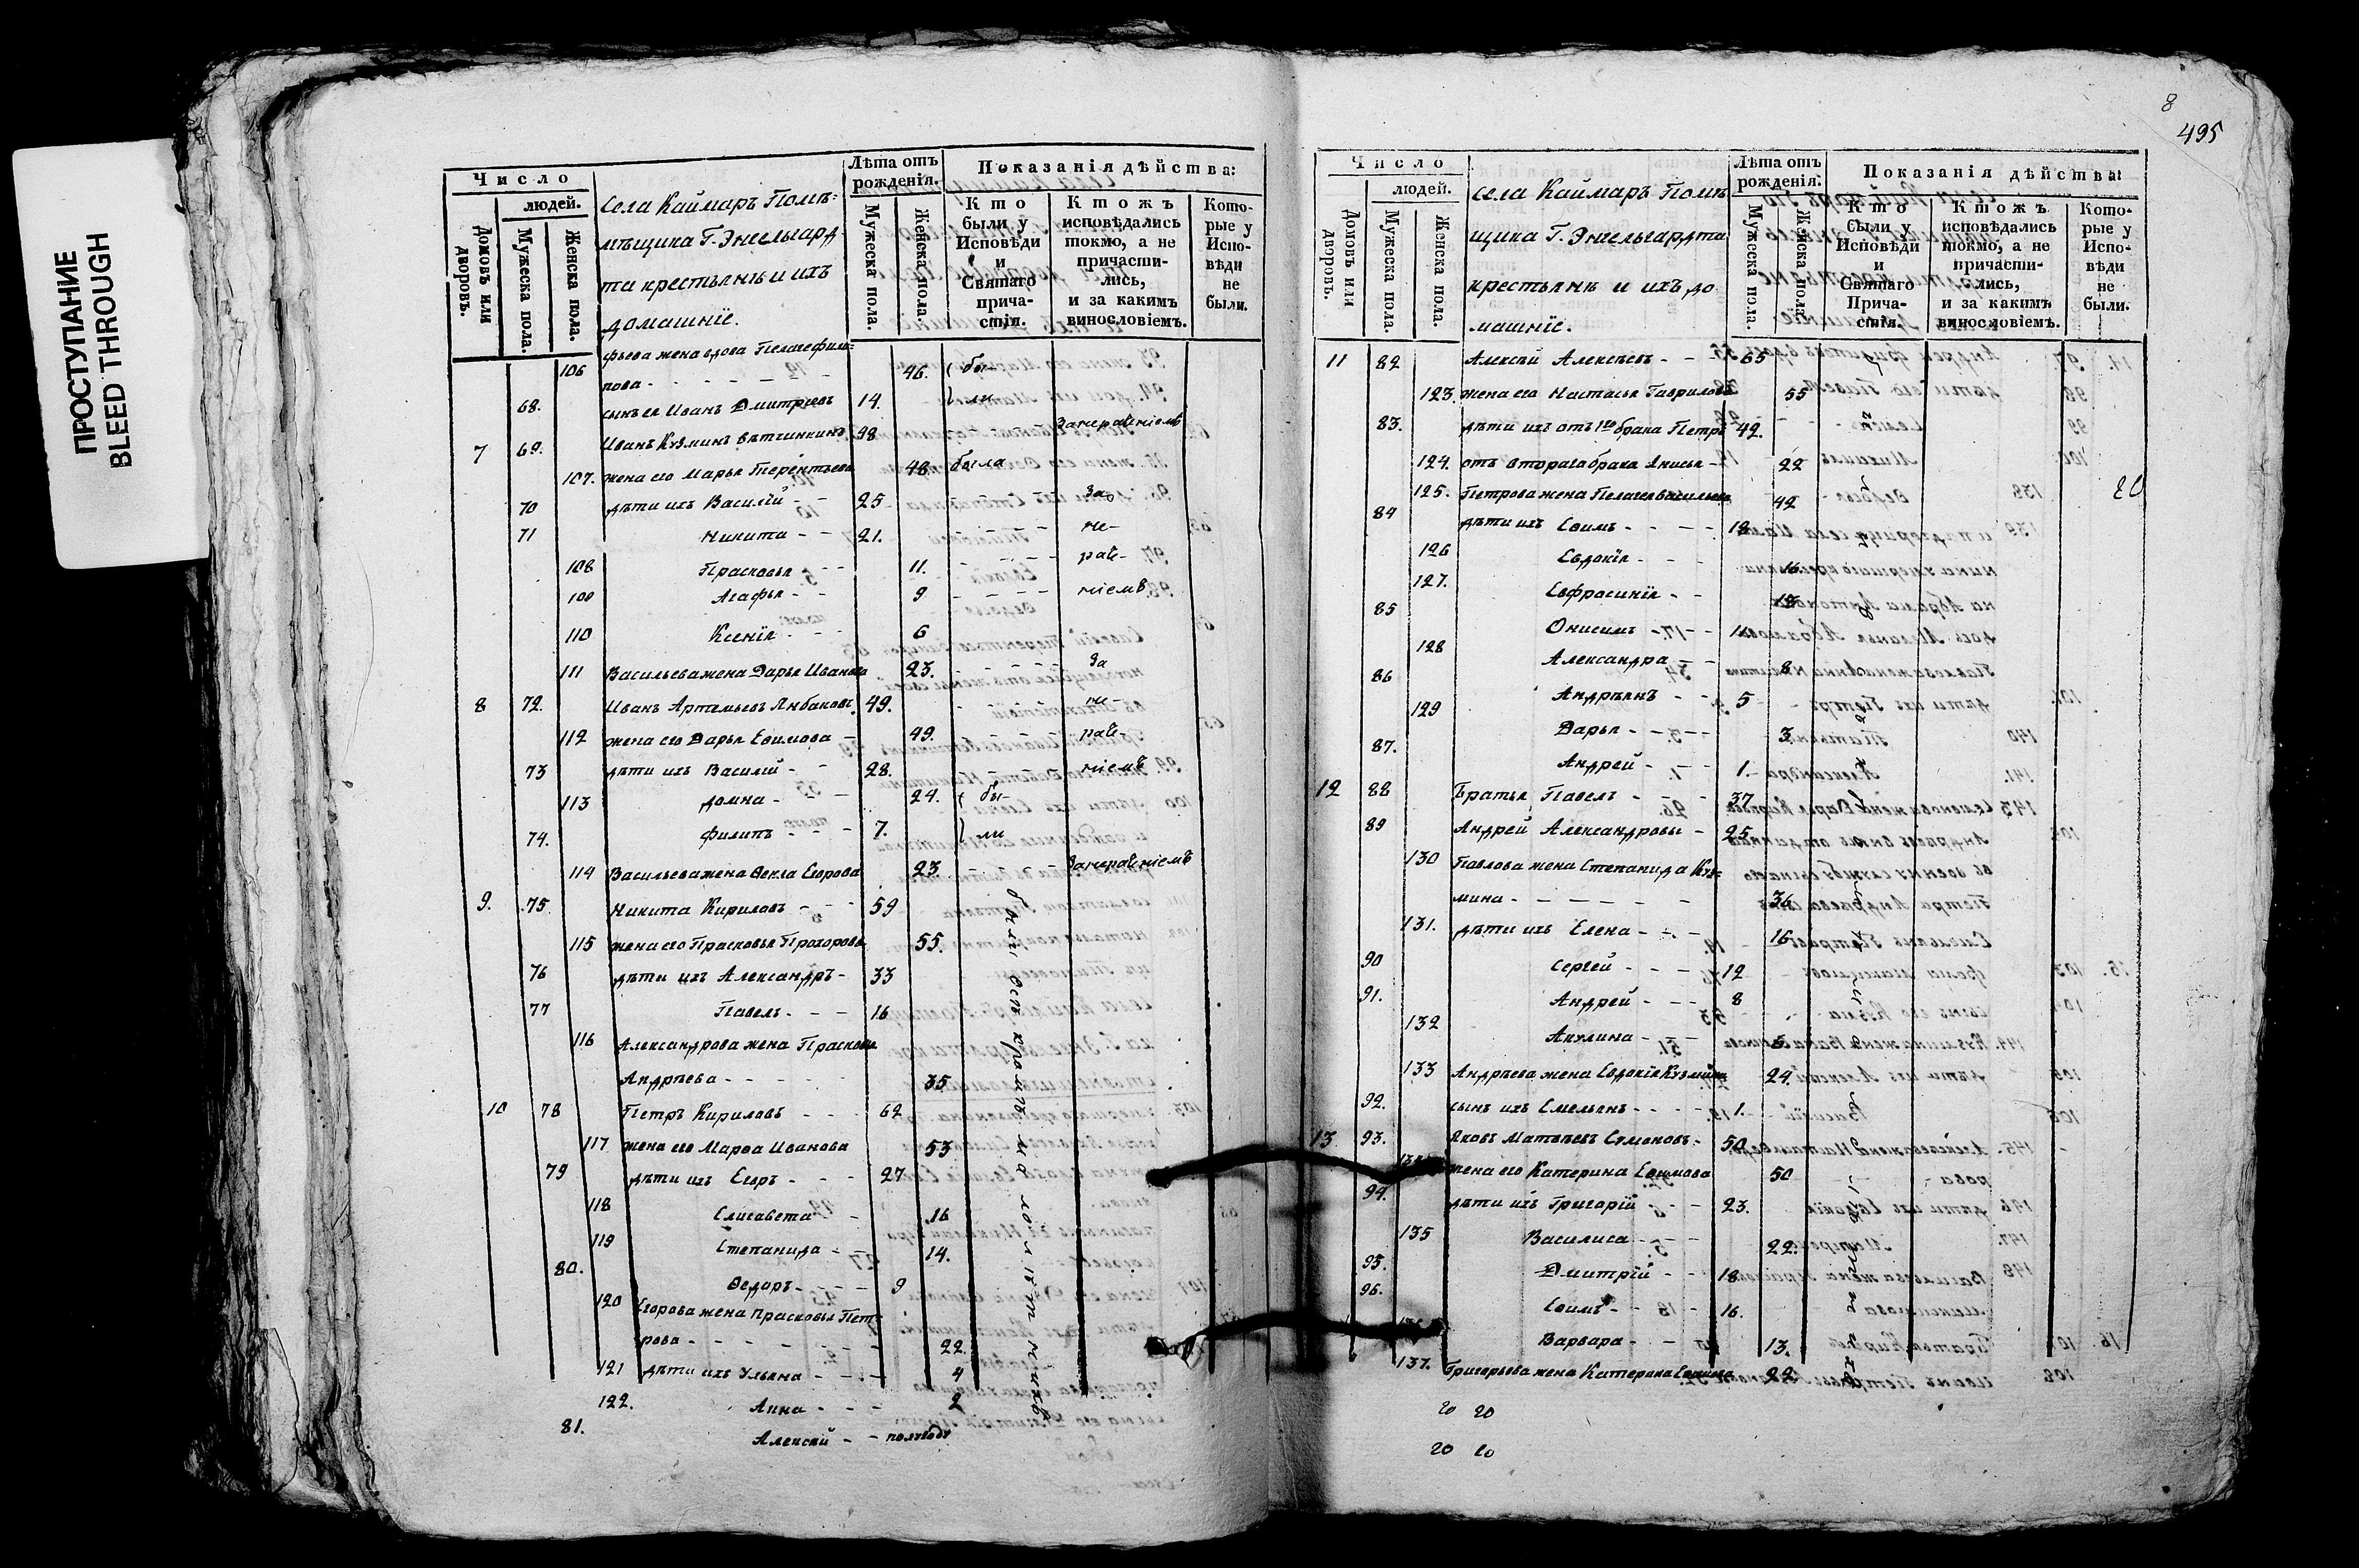 ПРОСТУПАНИЕ
BLEED THROUGH
Число
людей.
Домовъ или дворовъ.
Мужеска пола.
Женска пола.
Села Каймаръ Помѣ=
мѣщика Г. Энгельгард
та крестьянѣ и ихъ
домашніе.
Лѣта отъ рожденія.
Мужеска пола.
Женска пола.
Показанія дѣйства:
Кто были у Исповѣди и Святаго причастія.
Ктожъ исповѣдались токмо, а не причастились, и за какимъ винословіемъ.
Которые у Исповѣди не были.
фьева жена вдова Пелагея фили=
106 пова - - - 46. бы-
68. сынъ ея Иванъ Дмитріевъ 14. ли
7 69. Иванъ Кузминъ 98 Занераченіемъ
107. жена его Марья Терентьева 48. была
70 дѣти ихъ Василій - - 25 За
71 Никита - - 21. не-
108 Прасковья - - 11. раче-
109 Агафья - - 9 ніемъ
110 Ксенія - - 6
111 Васильева жена Дарья Иванова 23. За
8 72. Иванъ Артемьевъ 49. не-
112 жена его Дарья Ефимова - 49. раче-
73 дѣти ихъ Василій - - 28. ніемъ
113 домна - - - 24. бы-
74. филипъ - - - 7. ли
114 Васильева жена Ѳекла Егорова 23 Занераченіемъ
9. 75. Никита Кириловъ - - - 59
115 жена его Прасковья Прохорова 55.
76 дѣти ихъ Александръ - 33
77 Павелъ - - - 16
116 Александрова жена Прасковья
Андрѣева - - - 35
10 78 Петръ Кириловъ - - - 62
117 жена его Марѳа Иванова 53
79 дѣти ихъ Егоръ - - - 27
118 Елисавета - 16
119 Степанида - - 14.
80. Ѳедоръ - - - - 9
120 Егорова жена Прасковья Пет-
рова - - - 22.
121 дѣти ихъ Ульяна - - - - 4
122. Анна - - - 2
81. Алексѣй - - полгода
8
495
Число
людей.
Домовъ или дворовъ.
Мужеска пола.
Женска пола.
Села Каймаръ Помѣ
щика Г. Энгельгардта
крестьянѣ и ихъ до
машніе.
Лѣта отъ рожденія.
Мужеска пола.
Женска пола.
Показанія дѣйства:
Кто были у Исповѣди и Святаго Причастія.
Ктожъ исповѣдались токмо, а не причастились, и за какимъ винословіемъ.
Которые у Исповѣди не были.
11 82 Алексѣй Алексѣевъ - - 65
123. жена его Настасья Гаврилова 55
83. дѣти ихъ отъ 1го брака Петръ 42.
124. отъ втораго брака Анисья - 22
125. Петрова жена Пелагея Васильева 42
84 дѣти ихъ Ефимъ - - - - 18
126 Евдокія - - - 16
127. Евфросинія - -
85 Онисимъ - - - 11
128 Александра - - 8
86 Андрѣянъ - - 5
129 Дарья - - - - 3
87. Андрей - - - 1.
12 88 Братья Павелъ - - - - 37
89 Андрей Александровы - 25
130 Павлова жена Степанида Куз-
мина - - - 36
131. дѣти ихъ Елена - - - 16
90 Сергей - - - - 12
91. Андрей - - - - 8
132 Акулина - - -
133 Андрѣева жена Евдокія Кузмина 24.
92. сынъ ихъ Емельянъ - - - - 1.
13 93. Яковъ Матвѣевъ - 50
жена его Катерина Ефимова 50
94. дѣти ихъ Григорій - - - 23.
135 Василиса - - - 22.
95. Дмитрій - - 18
96. Ефимъ - - - 16.
Варвара - - 13.
137. Григорьева жена Катерина 22
20 20
20 20